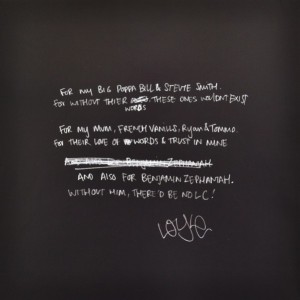 FOR MY BIG POPPA BILL & STEVIE SMITH.
FOR WITHOUT THIER WORDS, THESE ONES WOULDN'T EXIST
FOR MY MUM, FRENCH VANILLS, RYAN & TOMMO.
FOR THEIR LOVE OF WORDS & TRUST IN MINE
AND ALSO FOR BENJAMIN ZEPHANIAH.
WITHOUT HIM, THERE'D BE NO LC!